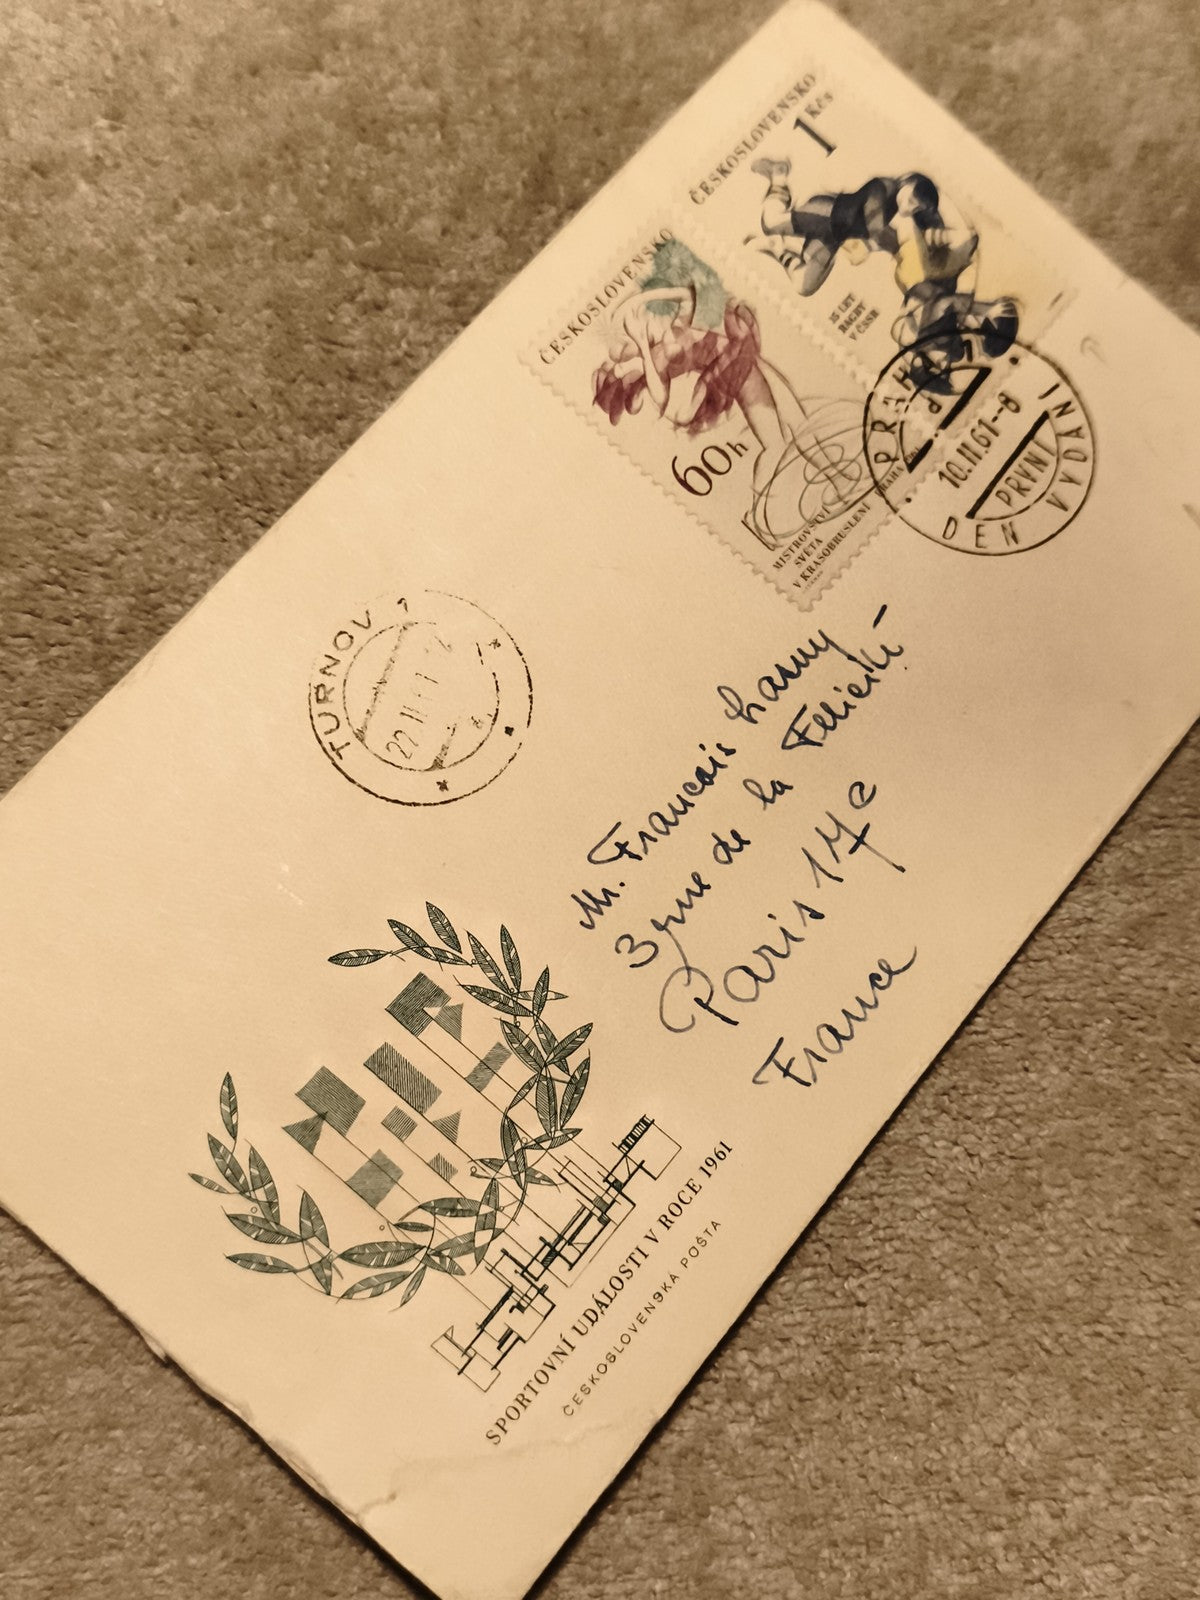 ČESKOSLOVENSKO
60h
MISTROVSTVÍ
SVĚTA
V KRASOBRUSLENÍ
PRAHA
ČESKOSLOVENSKO
1 Kčs
35 LET
RAGBY
V ČSSR
PRAHA 1
d
10.II.61-8
PRVNÍ
DEN VYDÁNÍ
TURNOV
22 II 61
Mr. Francois Lamy
3 rue de la Félicité
Paris 17e
France
SPORTOVNÍ UDÁLOSTI V ROCE 1961
ČESKOSLOVENSKÁ POŠTA